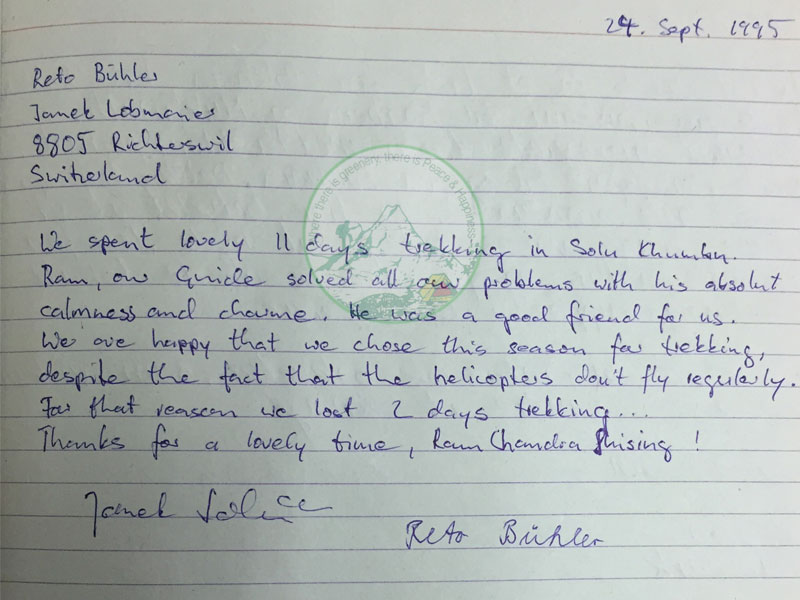 24. Sept. 1995
Reto Bühler
Janek Lobmaier
8805 Richterswil
Switzerland
We spent lovely 11 days trekking in Solu Khumbu.
Ram, our Guide solved all our problems with his absolut
calmness and charme. He was a good friend for us.
We are happy that we chose this season for trekking,
despite the fact that the helicopters don't fly regularly.
For that reason we lost 2 days trekking...
Thanks for a lovely time, Ram Chandra Thising !
Janek
Reto Bühler
where there is greenery, there is Peace & Happiness